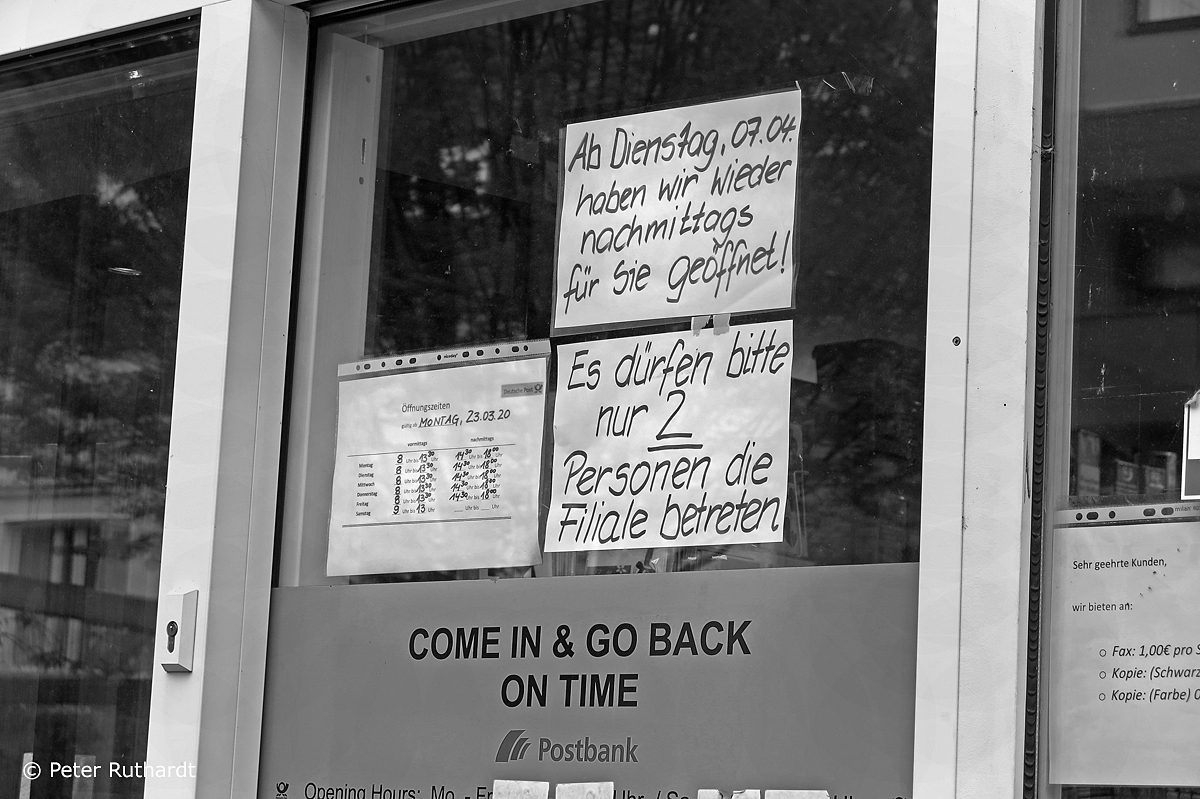 Ab Dienstag, 07.04.
haben wir wieder
nachmittags
für Sie geöffnet!
Es dürfen bitte
nur 2
Personen die
Filiale betreten
Deutsche Post
Öffnungszeiten
gültig ab MONTAG, 23.03.20
vormittags nachmittags
Montag 8 Uhr bis 13 30 Uhr 14 30 Uhr bis 18 00 Uhr
Dienstag 8 Uhr bis 13 30 Uhr 14 30 Uhr bis 18 00 Uhr
Mittwoch 8 Uhr bis 13 30 Uhr 14 30 Uhr bis 18 00 Uhr
Donnerstag 8 Uhr bis 13 30 Uhr 14 30 Uhr bis 18 00 Uhr
Freitag 8 Uhr bis 13 30 Uhr 14 30 Uhr bis 18 00 Uhr
Samstag 9 Uhr bis 13 Uhr __ Uhr bis __ Uhr
COME IN & GO BACK
ON TIME
Postbank
Opening Hours: Mo. - Fr
Uhr / Sa
Sehr geehrte Kunden,
wir bieten an:
○ Fax: 1,00€ pro S
○ Kopie: (Schwarz
○ Kopie: (Farbe) 0
© Peter Ruthardt